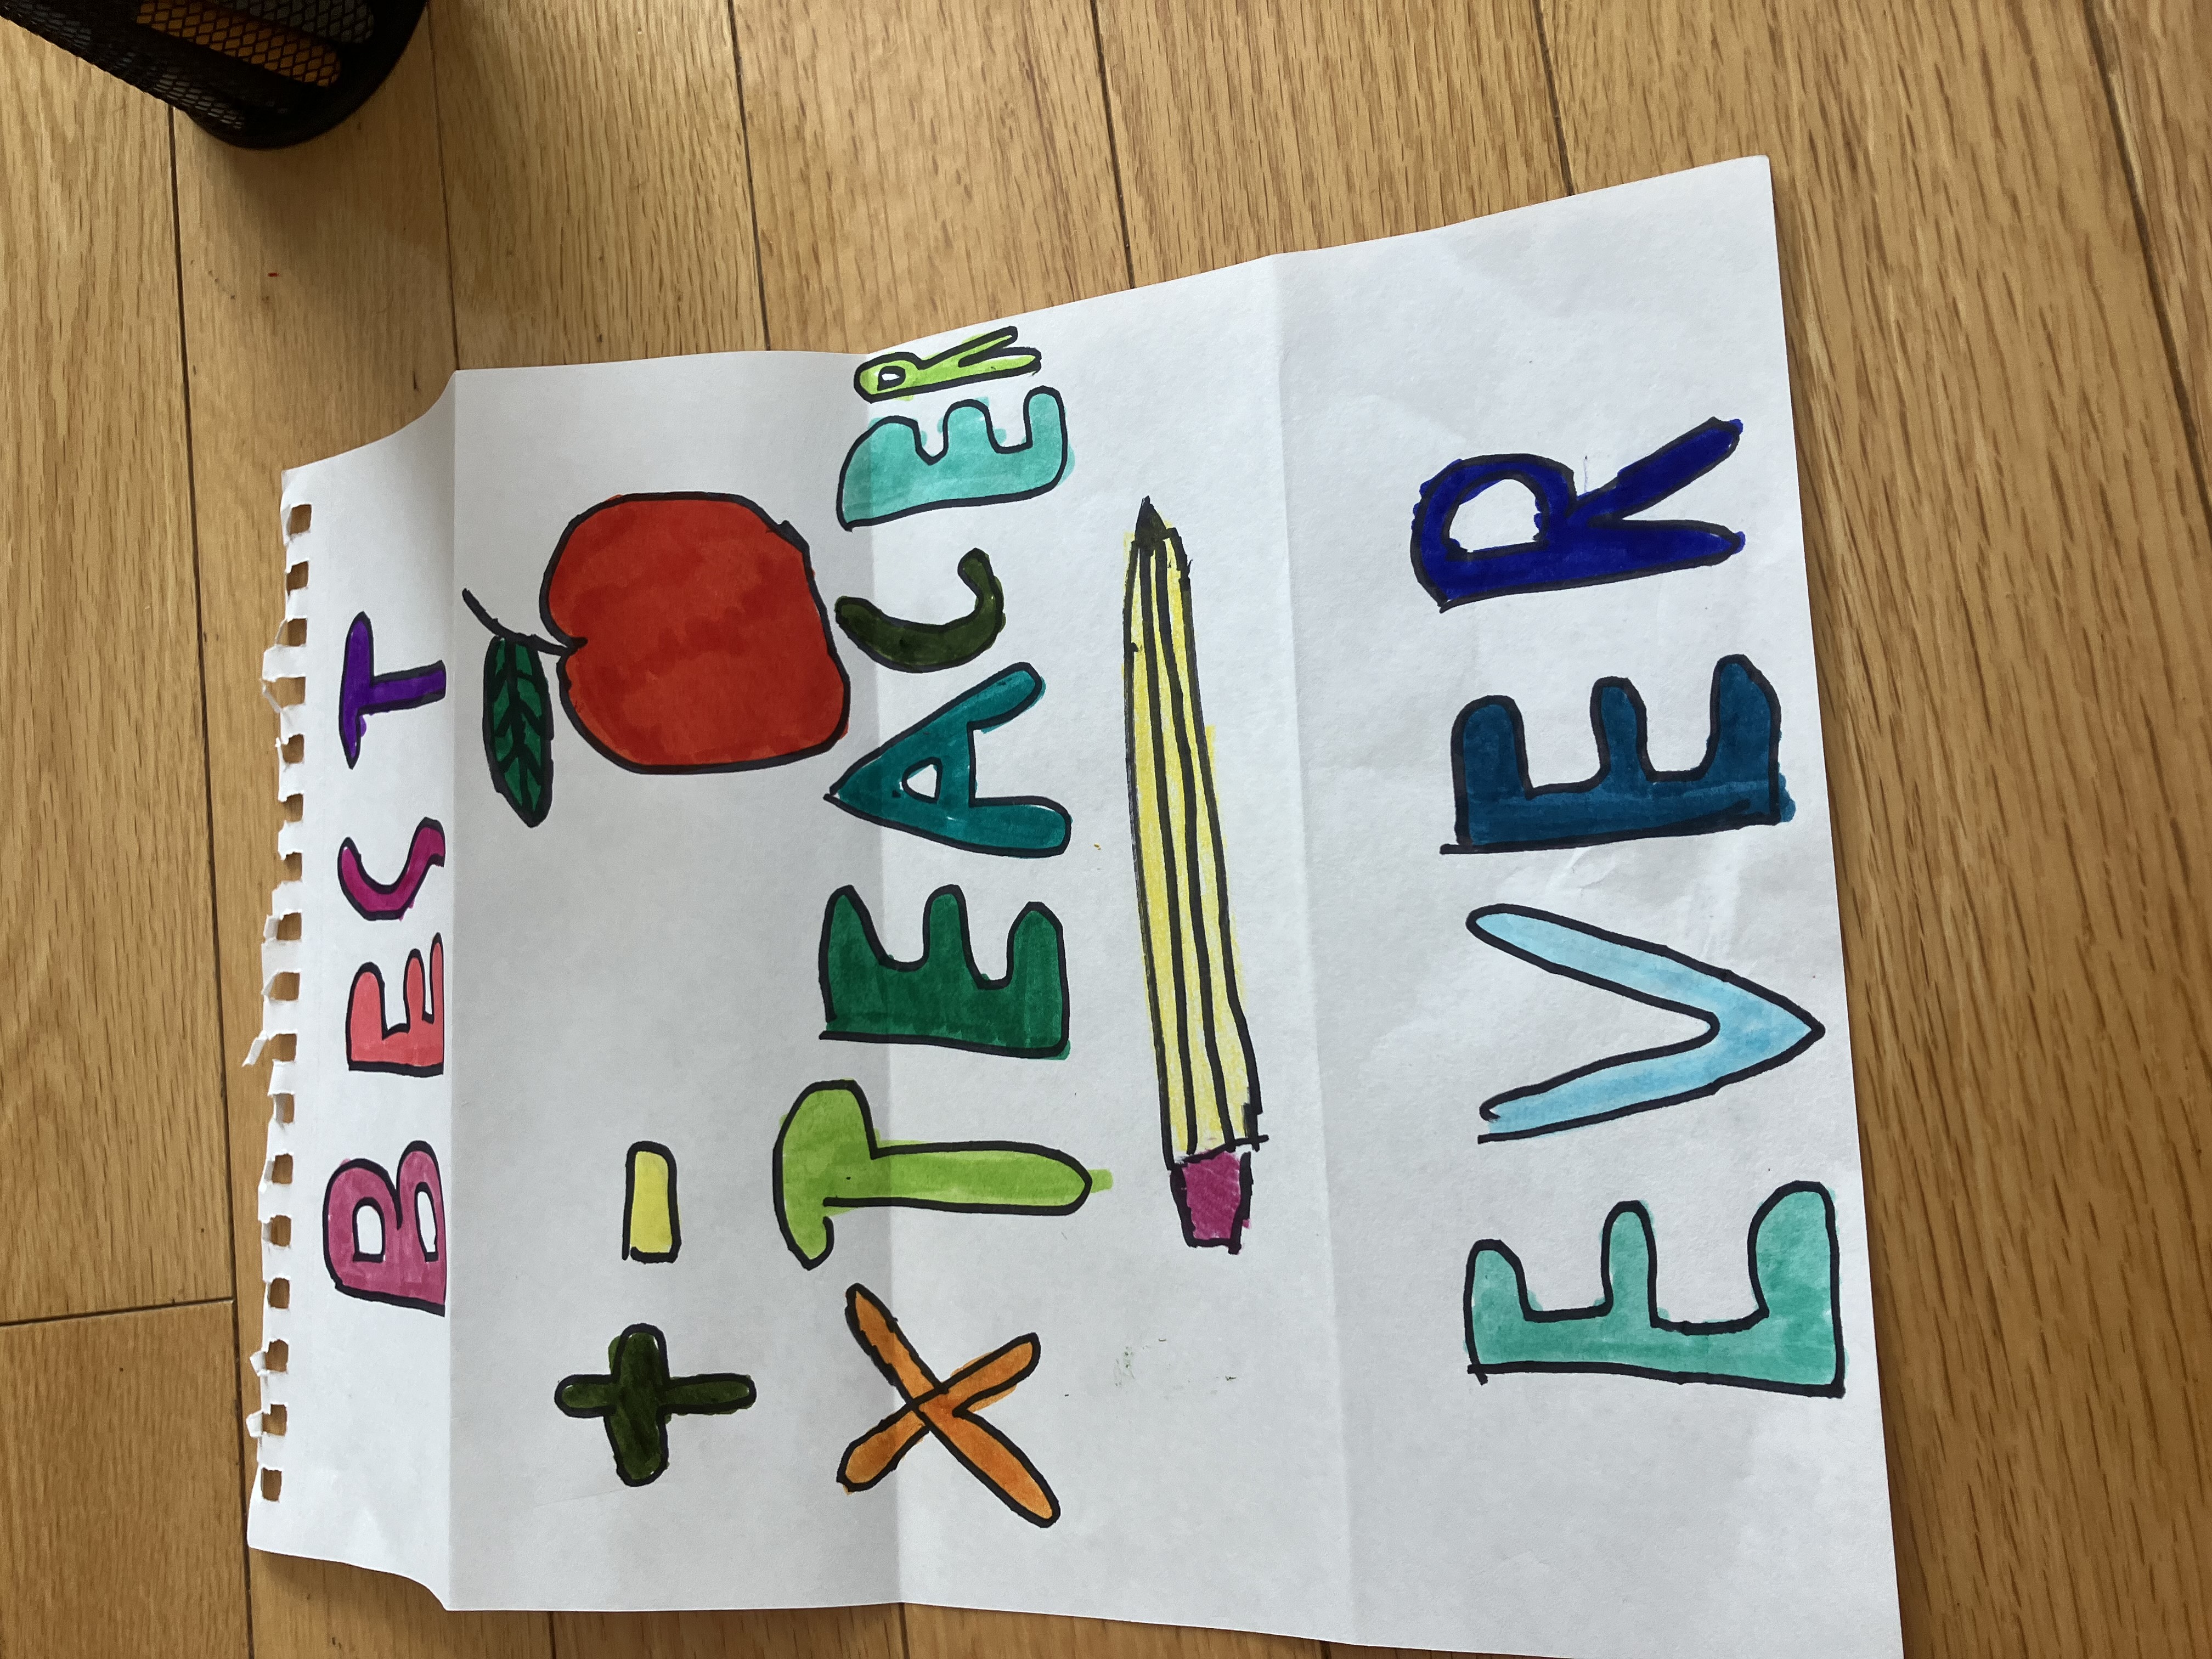 BEST
+ -
X TEACER
EVER